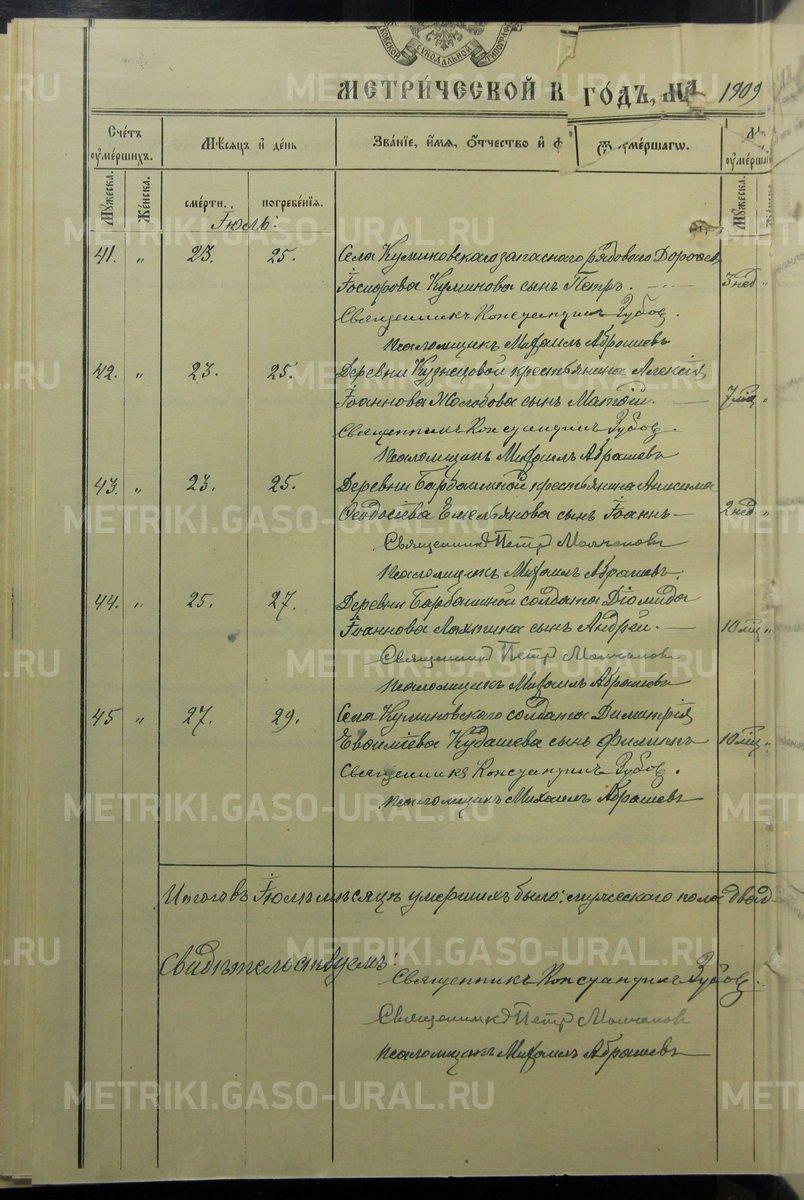 МЕТРИ́ЧЕСКОЙ К ГО́ДЪ, НА 1909
Счетъ оумершихъ.
Мѣсяцъ и день
Званіе, имя, отчество и ф оумершагѡ.
Мужеска.
Женска.
смерти.
погребенія.
Мужеска.
Іюль:
41. " 23. 25. Села Куминовскаго запаснаго рядоваго Дороѳея
Іосифова Куминова сынъ Петръ. 3 нед "
Священникъ Константинъ Зубов.
Псаломщикъ Михаилъ Абрашевъ
42. " 23. 25. Деревни Кузнецовой крестьянина Алексія
Іоаннова Жолобова сынъ Матѳій. 7 мѣс "
Священникъ Константинъ Зубов.
Псаломщикъ Михаилъ Абрашевъ
43. " 23. 25. Деревни Барбашиной крестьянина Анисима
Ѳеодосіева Емельянова сынъ Іоаннъ 2 нед "
Священникъ Петр Молчанов
Псаломщикъ Михаилъ Абрашевъ.
44. " 25. 27. Деревни Барбашиной солдата Діомида
Іоаннова сынъ Андрей. 10 мѣс "
Священникъ Петр Молчанов
Псаломщикъ Михаилъ Абрашевъ
45 " 27. 29. Села Куминовскаго солдата Димитрія
Евѳиміева Кудашева сынъ Филиппъ 10 мѣс "
Священникъ Константинъ Зубов.
Псаломщикъ Михаилъ Абрашевъ
Итого въ Іюлѣ мѣсяцѣ умершихъ было: мужескаго пола двад
Свидѣтельствуемъ:
Священникъ Константинъ Зубов.
Священникъ Петр Молчанов
Псаломщикъ Михаилъ Абрашевъ
METRIKI.GASO-URAL.RU